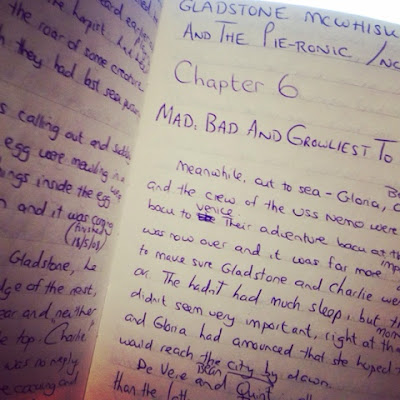 said earlier
the harpist had
the roar of some creature
they had last seen
s calling out and
egg were mewling in a
ings inside the egg was
n and it was coming
(finished)
(18/5/08)
Gladstone, he
dge of the nest,
ear and neither
e top. Charlie
was no reply.
e cawing and
GLADSTONE MCWHISK
AND THE PIE-RONIC INC
Chapter 6
MAD, BAD AND GROWLIEST TO
Meanwhile, out to sea - Gloria,
and the crew of the USS Nemo were
venice
back to Their adventure back at th
was now over and it was far more imp
to make sure Gladstone and Charlie wer
ok. The hadn't had much sleep, but th
didn't seem very important, right at tha mom
and Gloria had announced that she hoped
would reach the city by dawn.
De Vere and Quint
than the